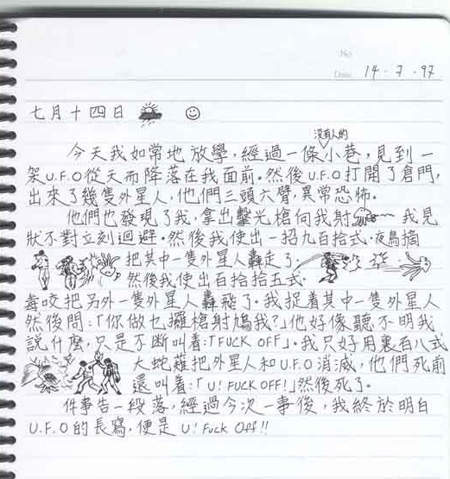 No
Date 14 - 7 - 97
七月十四日
沒有人的
今天我如常地放學，經過一條小巷，見到一
架U.F.O從天而降落在我面前。然後U.F.O打開了倉門，
出來了幾隻外星人，他們三頭六臂，異常恐怖。
他們也發現了我，拿出鐳光槍向我射 我見
狀不對立刻迴避。然後我使出一招九百拾式.夜鳥摘
把其中一隻外星人轟走了.
然後我使出百拾拾五式.
毒咬把另外一隻外星人轟飛了。我捉着其中一隻外星人
然後問:「你做乜攞槍射鳩我?」他好像聽不明我
說什麼，只是不斷叫着:「FUCK OFF」。我只好用裏百八式
大蛇薙把外星人和U.F.O消滅，他們死前
還叫着:「U! FUCK OFF!」然後死了。
件事告一段落，經過今次一事後，我終於明白
U.F.O的長寫，便是 U! Fuck Off!!